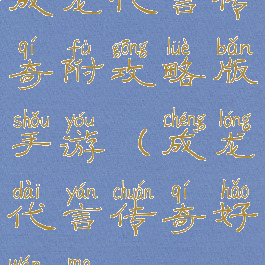 成龙代言传
qí fù gōng lüè bǎn
奇附攻略版
shǒu yóu chéng lóng
手游（成龙
dài yán chuán qí hǎo
代言传奇好